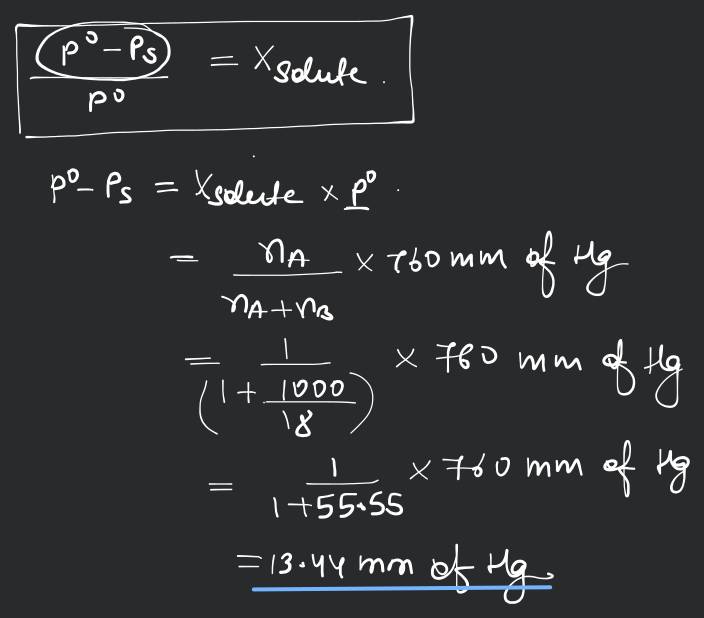 (p⁰ - Ps) / p⁰ = X solute.
p⁰ - Ps = X solute × p⁰.
= nA / (nA + nB) × 760 mm of Hg
= 1 / (1 + 1000/18) × 760 mm of Hg
= 1 / (1 + 55.55) × 760 mm of Hg
= 13.44 mm of Hg